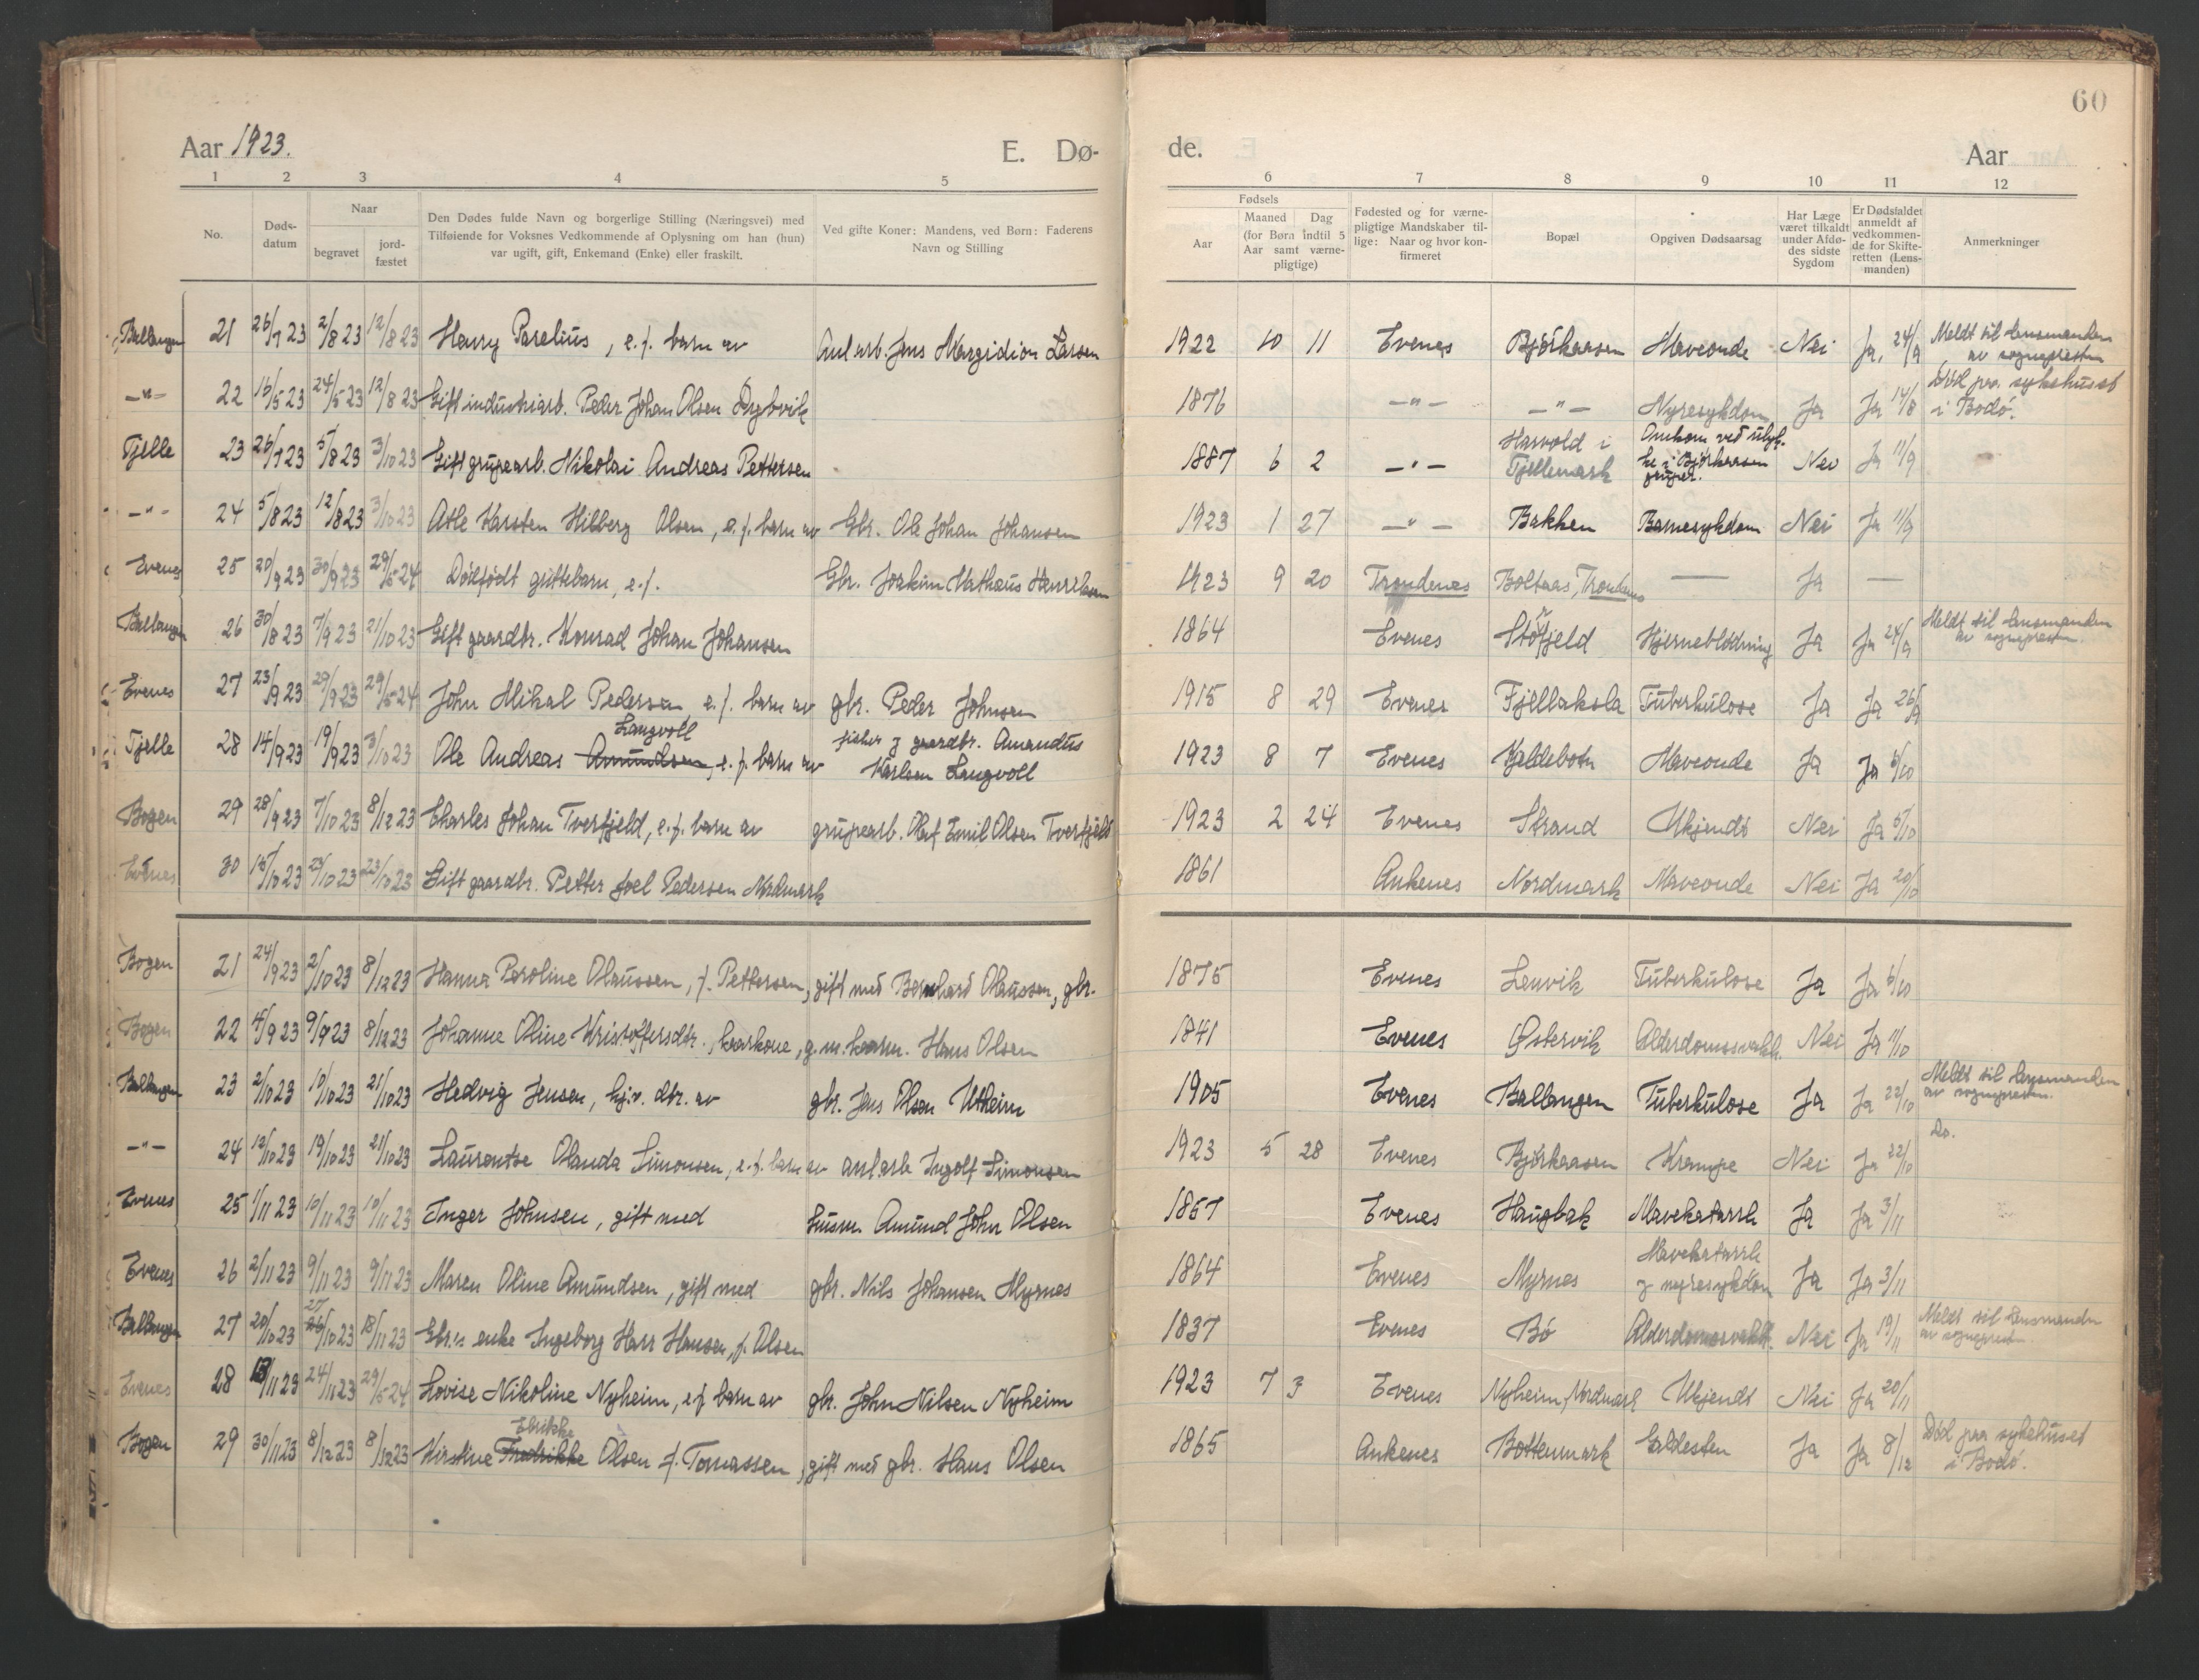 60
Aar 1923.
E. Dø-
de.
Aar
1 2 3 4 5
6 7 8 9 10 11 12
No.
Døds-
datum
Naar
begravet
jord-
fæstet
Den Dødes fulde Navn og borgerlige Stilling (Næringsvei) med
Tilføiende for Voksnes Vedkommende af Oplysning om han (hun)
var ugift, gift, Enkemand (Enke) eller fraskilt.
Ved gifte Koner: Mandens, ved Børn: Faderens
Navn og Stilling
Fødsels
Aar
Maaned Dag
(for Børn indtil 5
Aar samt værne-
pligtige)
Fødested og for værne-
pligtige Mandskaber til-
lige: Naar og hvor kon-
firmeret
Bopæl
Opgiven Dødsaarsag
Har Læge
været tilkaldt
under Afdø-
des sidste
Sygdom
Er Dødsfaldet
anmeldt af
vedkommen-
de for Skifte-
retten (Lens-
manden)
Anmerkninger
Ballangen 21 26/7 23 2/8 23 12/8 23 Harry Parelius, e.f. barn av Anl.arb. Jens Margidion Larsen 1922 10 11 Evenes Bjørkaasen Maveonde Nei Ja, 24/9 Meldt til lensmanden
av sognepresten
-"- 22 16/5 23 24/5 23 12/8 23 Gift industriarb. Peder Johan Olsen Dybvik 1876 -"- -"- Nyresykdom Ja Ja 14/8 Død paa sykehuset
i Bodø.
Fjelle 23 26/7 23 5/8 23 3/10 23 Gift grupearb. Nikolai Andreas Pettersen 1887 6 2 -"- Harvold i
Fjellemark Omkom ved ulyk-
ke i Bjørkaasen
gruper. Nei Ja 11/9
-"- 24 5/8 23 12/8 23 3/10 23 Atle Karsten Hilberg Olsen, e.f. barn av Gbr. Ole Johan Johansen 1923 1 27 -"- Bakken Barnesykdom Nei Ja 11/9
Evenes 25 20/9 23 30/9 23 29/5 24 Dødfødt guttebarn, e.f. Gbr. Joakim Mathæus Henriksen 1923 9 20 Trondenes Boltaas, Trondenes — Ja —
Ballangen 26 30/8 23 7/9 23 21/10 23 Gift gaardbr. Konrad Johan Johansen 1864 Evenes Størfjeld Hjerneblødning Ja Ja 24/9 Meldt til lensmanden
av sognepresten.
Evenes 27 23/9 23 29/9 23 29/5 24 John Mikal Pedersen e.f. barn av gbr. Peder Johnsen 1915 8 29 Evenes Fjellaksla Tuberkulose Ja Ja 26/9
Fjelle 28 14/9 23 19/9 23 3/10 23 Ole Andreas Amundsen Langvoll, e.f. barn av fisker og gaardbr. Amandus
Karlsen Langvoll 1923 8 7 Evenes Kjeldebotn Maveonde Ja Ja 6/10
Bogen 29 28/9 23 7/10 23 8/12 23 Charles Johan Tverfjeld, e.f. barn av grupearb. Olaf Emil Olsen Tverfjeld 1923 2 24 Evenes Strand Ukjendt Nei Ja 6/10
Evenes 30 15/10 23 23/10 23 23/10 23 Gift gaardbr. Petter Joel Pedersen Nordmark 1861 Ankenes Nordmark Maveonde Nei Ja 20/10
Bogen 21 24/9 23 2/10 23 8/12 23 Hanna Paroline Olaussen, f. Pettersen, gift med Bernhard Olaussen, gbr. 1875 Evenes Lenvik Tuberkulose Ja Ja 6/10
Bogen 22 4/9 23 9/9 23 8/12 23 Johanne Oline Kristoffersdtr., kaarkone, g. m. kaarm. Hans Olsen 1841 Evenes Østervik Alderdomssvakh. Nei Ja 11/10
Ballangen 23 2/10 23 10/10 23 21/10 23 Hedvig Jensen, hjv. dtr. av gbr. Jens Olsen Utheim 1905 Evenes Ballangen Tuberkulose Ja Ja 22/10 Meldt til lensmanden
av sognepresten.
-"- 24 12/10 23 19/10 23 21/10 23 Laurentse Olanda Simonsen, e.f. barn av anl.arb Ingolf Simonsen 1923 5 28 Evenes Bjørkaasen Krampe Nei Ja 22/10 Do.
Evenes 25 1/11 23 10/11 23 10/11 23 Inger Johnsen, gift med husm. Amund John Olsen 1857 Evenes Haugbak Mavekatarrh Ja Ja 3/11
Evenes 26 2/11 23 9/11 23 9/11 23 Maren Oline Amundsen, gift med gbr. Nils Johansen Myrnes 1864 Evenes Myrnes Mavekatarrh
og nyresykdom Ja Ja 3/11
Ballangen 27 20/10 23 27/10 23 18/11 23 Gbr.s enke Ingeborg Harr Hansen, f. Olsen 1837 Evenes Bø Alderdomssvakh. Nei Ja 19/11 Meldt til lensmanden
av sognepresten
Evenes 28 13/11 23 24/11 23 29/5 24 Lovise Nikoline Nyheim, e.f barn av gbr. John Nilsen Nyheim 1923 7 3 Evenes Nyheim, Nordmark Ukjendt Nei Ja 20/11
Bogen 29 30/11 23 8/12 23 8/12 23 Kirstine Fredrikke Elrikke Olsen f. Tomassen, gift med gbr. Hans Olsen 1865 Ankenes Bottenmark Galdesten Ja Ja 8/12 Død paa sykehuset
i Bodø.